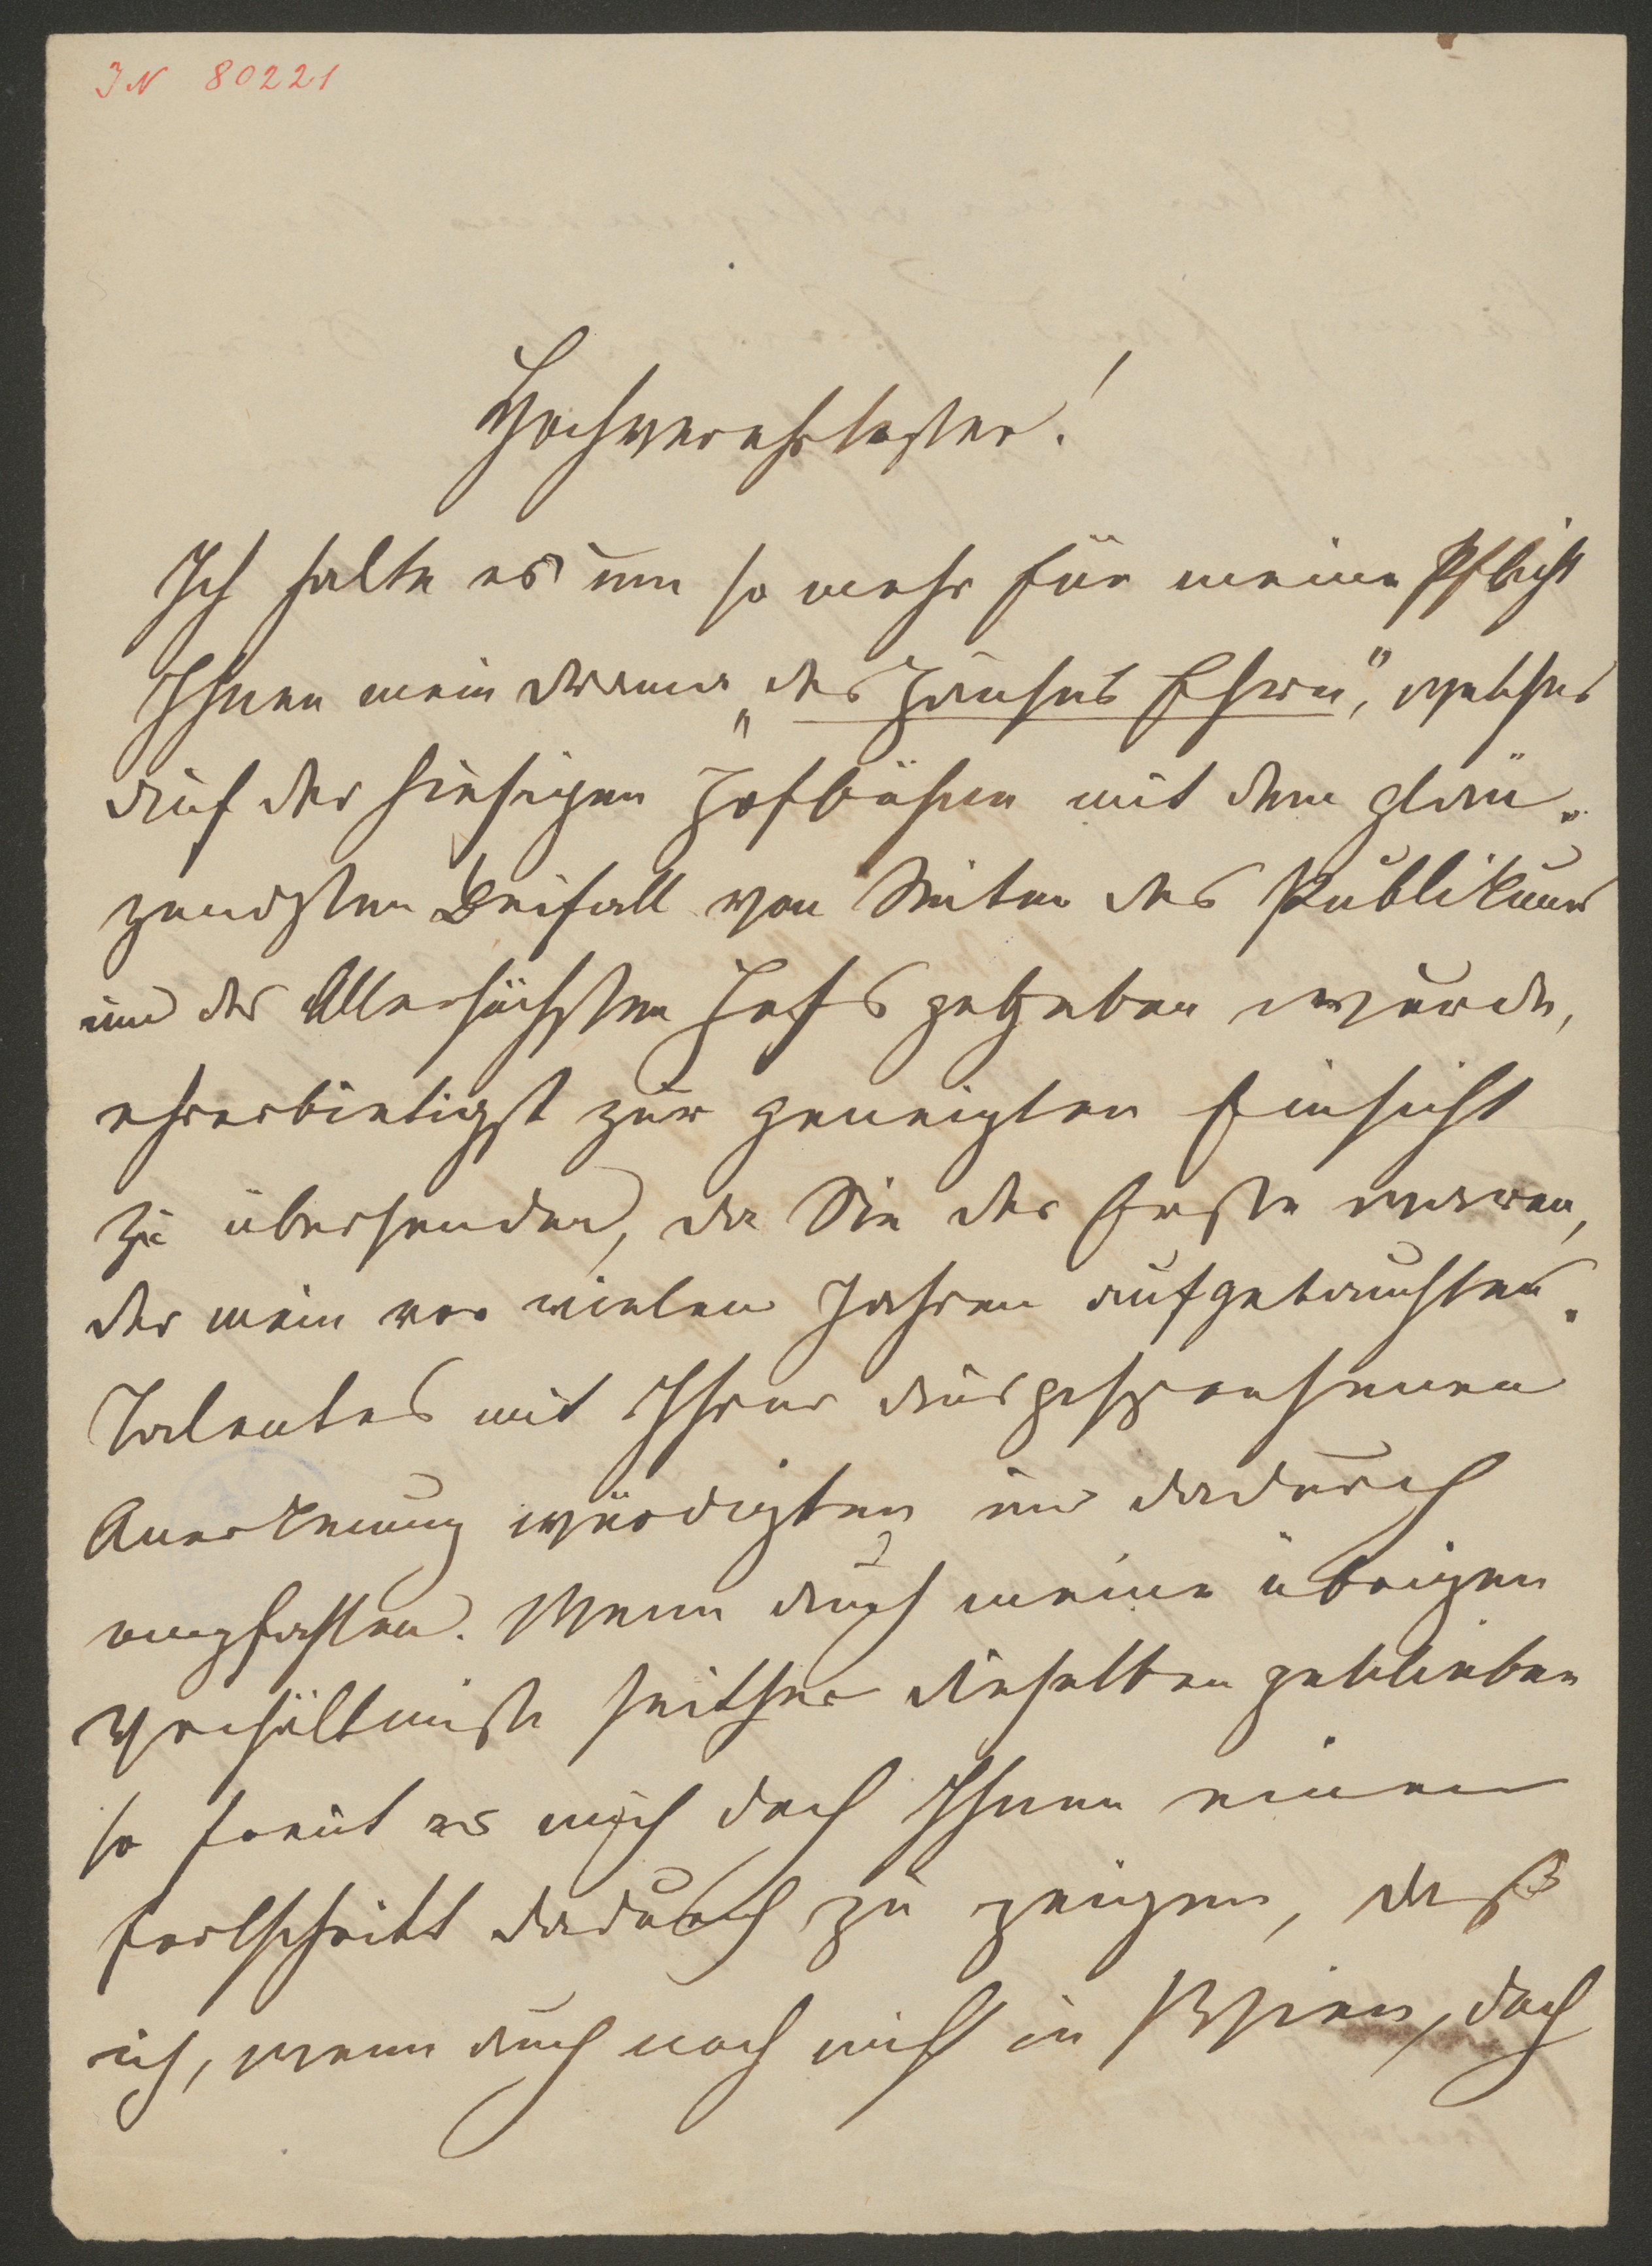 IN 80221
Hochverehrtester!
Ich halte es um so mehr für meine Pflicht
Ihnen mein Drama „des Hauses Ehre", welches
auf der hiesigen Hofbühne mit dem glän-
zendsten Beifall von Seiten des Publikums
und des Allerhöchsten Hofs gegeben wurde,
ehrerbietigst zur geneigten Einsicht
zu übersenden, da Sie der Erste waren,
der mein vor vielen Jahren aufgetauchtes
Talentes mit Ihrer ausgesprochenen
Anerkennung würdigten und dadurch
empfahlen. Wenn auch meine übrigen
Verhältnisse seither dieselben geblieben
so freut es mich doch Ihnen einen
Fortschritt dadurch zu zeigen, daß
ich, wenn auch noch nicht in Wien, doch